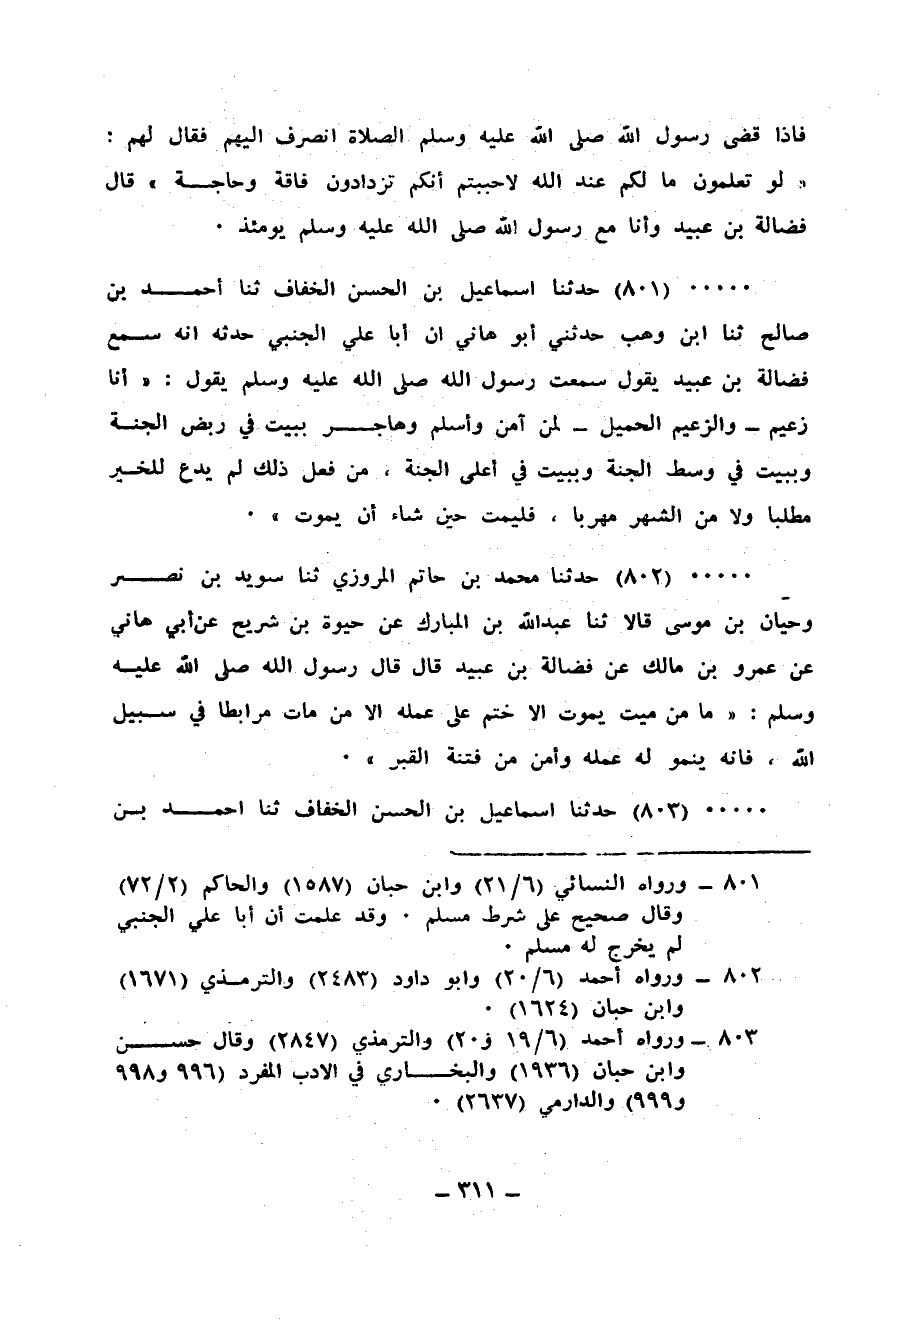 فاذا قضى رسول الله صلى الله عليه وسلم الصلاة انصرف اليهم فقال لهم :
« لو تعلمون ما لكم عند الله لاحببتم أنكم تزدادون فاقة وحاجة » قال
فضالة بن عبيد وأنا مع رسول الله صلى الله عليه وسلم يومئذ .
..... (٨٠١) حدثنا اسماعيل بن الحسن الخفاف ثنا أحمد بن
صالح ثنا ابن وهب حدثني أبو هاني ان أبا علي الجنبي حدثه انه سمع
فضالة بن عبيد يقول سمعت رسول الله صلى الله عليه وسلم يقول : « أنا
زعيم – والزعيم الحميل – لمن آمن وأسلم وهاجر ببيت في ربض الجنة
وببيت في وسط الجنة وببيت في أعلى الجنة ، من فعل ذلك لم يدع للخير
مطلبا ولا من الشهر مهربا ، فليمت حين شاء أن يموت » .
..... (٨٠٢) حدثنا محمد بن حاتم المروزي ثنا سويد بن نصر
وحيان بن موسى قالا ثنا عبدالله بن المبارك عن حيوة بن شريح عن أبي هاني
عن عمرو بن مالك عن فضالة بن عبيد قال قال رسول الله صلى الله عليه
وسلم : « ما من ميت يموت الا ختم على عمله الا من مات مرابطا في سبيل
الله ، فانه ينمو له عمله وأمن من فتنة القبر » .
..... (٨٠٣) حدثنا اسماعيل بن الحسن الخفاف ثنا احمد بن
٨٠١ – ورواه النسائي (٢١/٦) وابن حبان (١٥٨٧) والحاكم (٧٢/٢)
وقال صحيح على شرط مسلم . وقد علمت أن أبا علي الجنبي
لم يخرج له مسلم .
٨٠٢ – ورواه أحمد (٢٠/٦) وابو داود (٢٤٨٣) والترمذي (١٦٧١)
وابن حبان (١٦٢٤) .
٨٠٣ – ورواه أحمد (١٩/٦ و٢٠) والترمذي (٢٨٤٧) وقال حسن
وابن حبان (١٩٣٦) والبخاري في الادب المفرد (٩٩٦ و٩٩٨
و٩٩٩) والدارمي (٢٦٣٧) .
– ٣١١ –